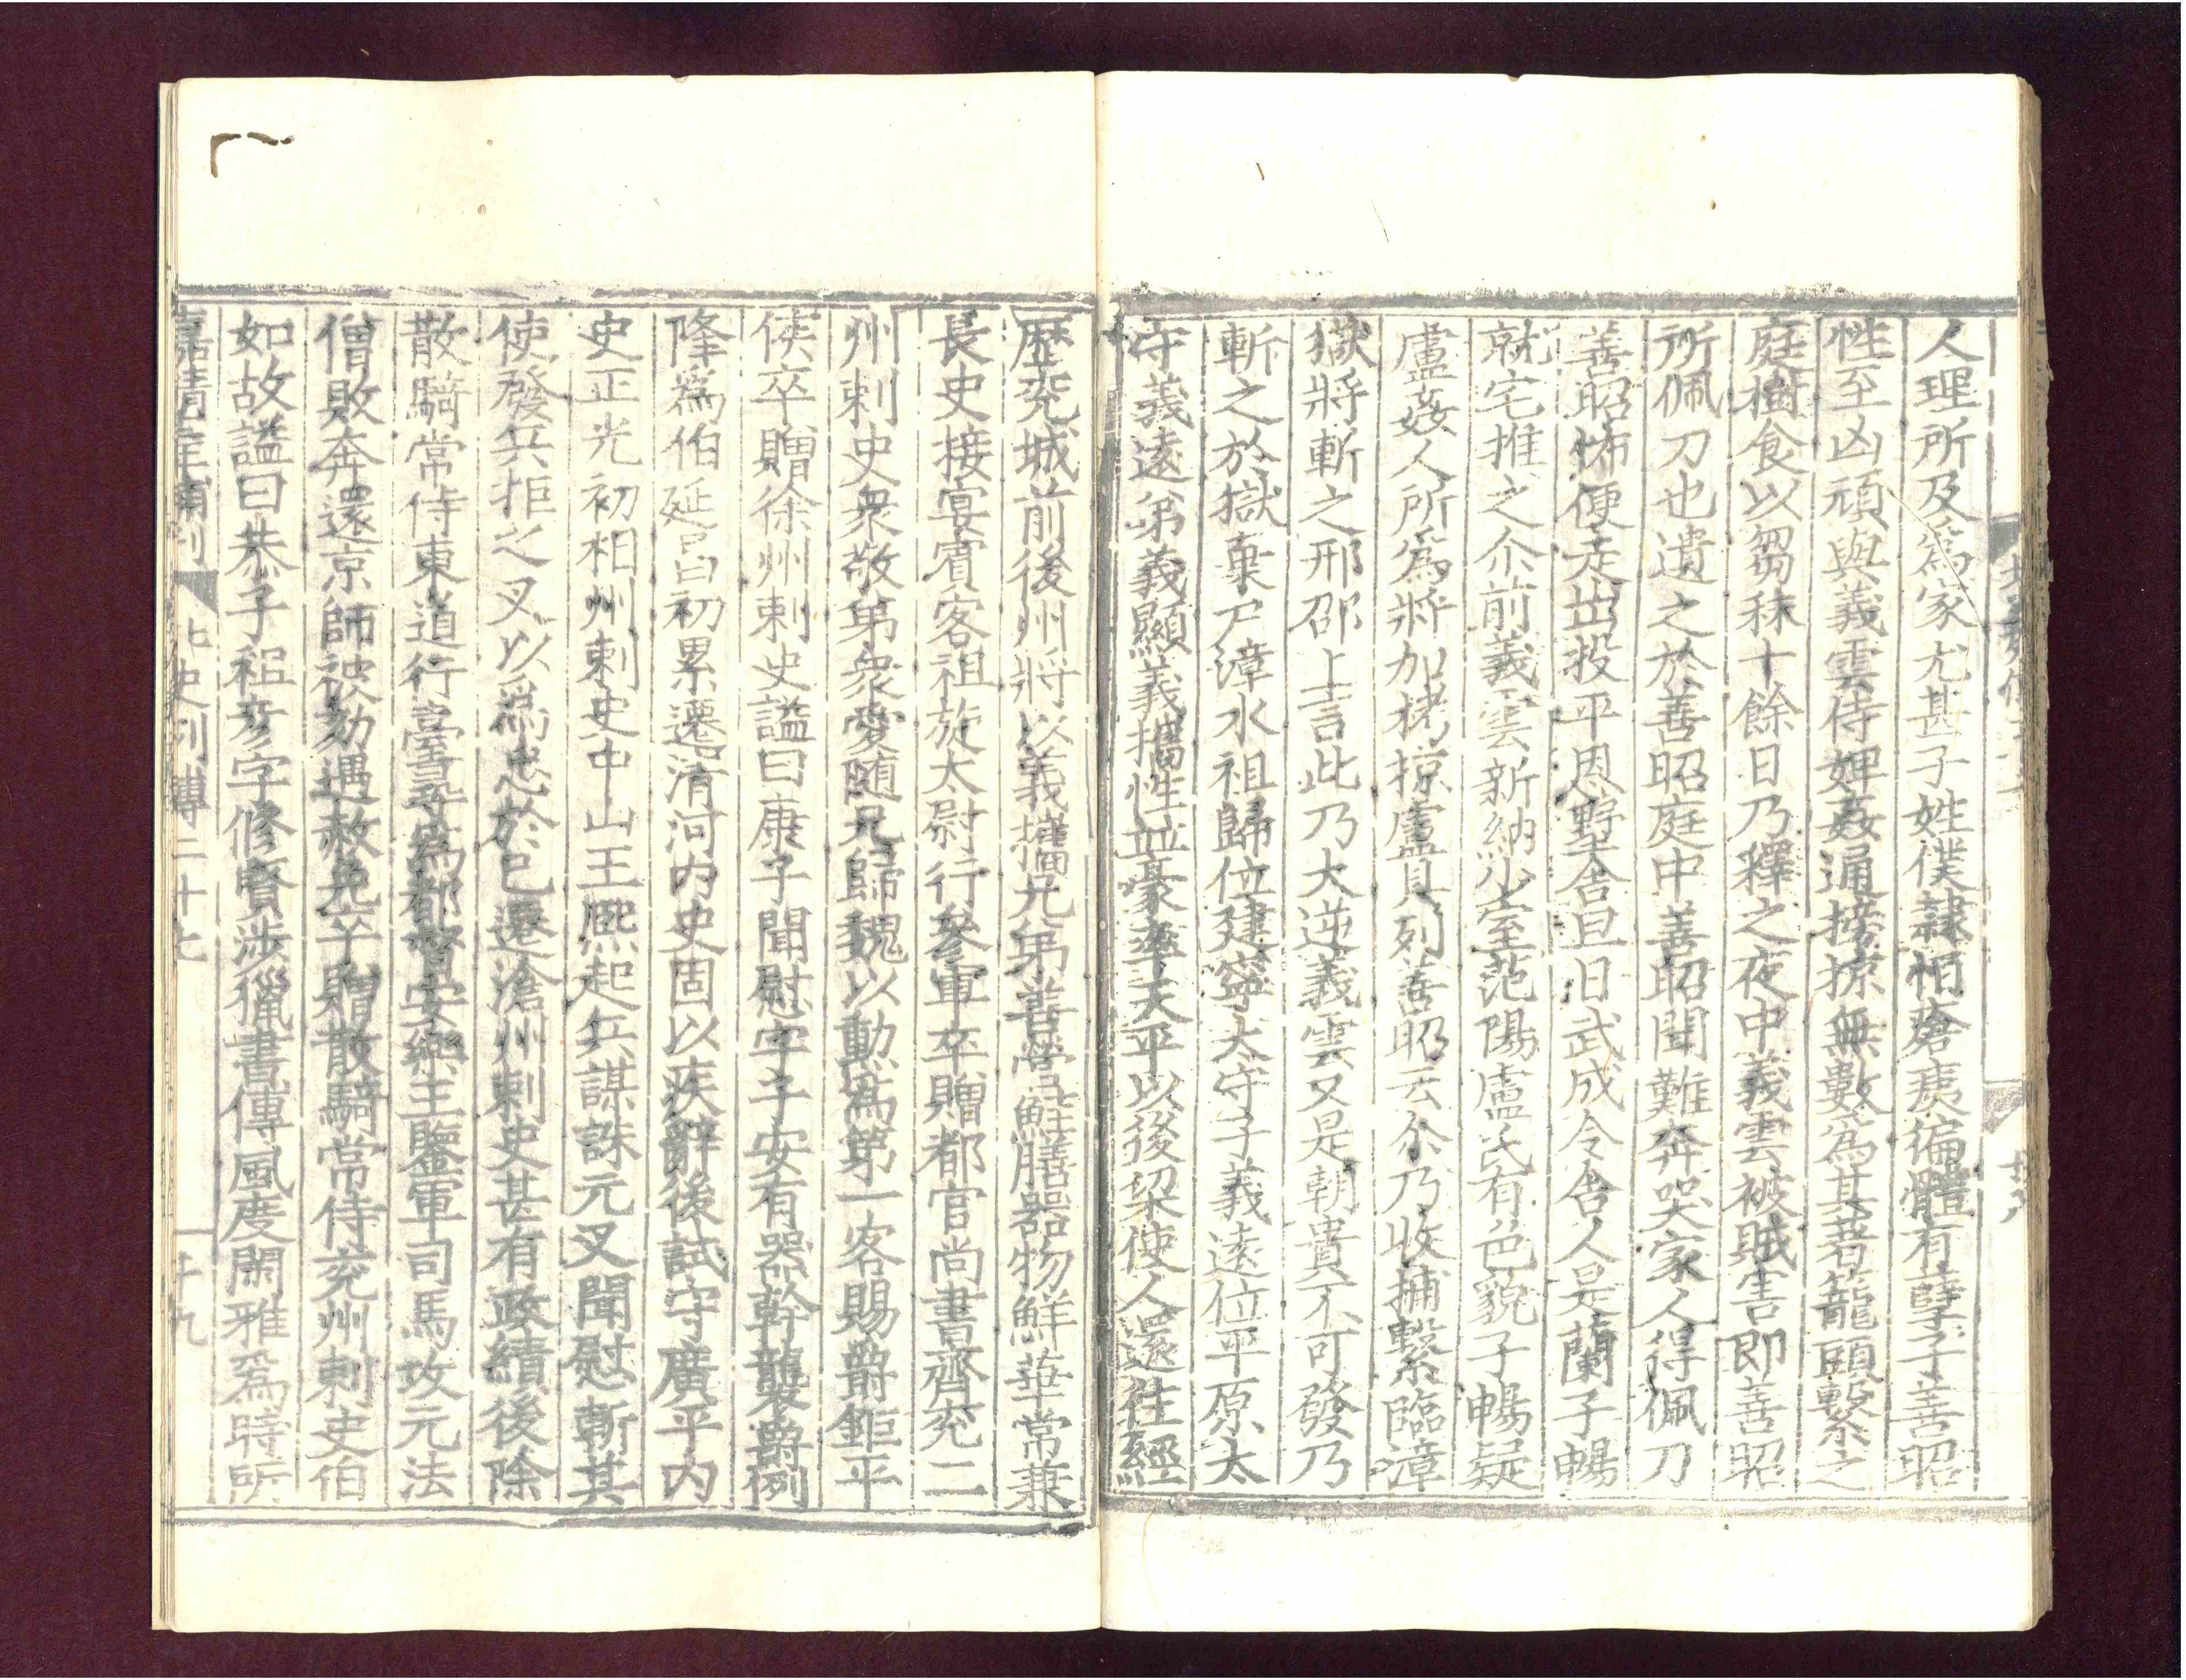 人理所及爲家尤甚子姓僕隷怕瘡痍徧體有孽子善昭
性至凶頑與義雲侍婢姦通搒掠無數爲其著籠頭繫之
庭樹食以芻秣十餘日乃釋之夜中義雲被賊害即善昭
所佩刀也遺之於善昭庭中善昭聞難奔哭家人得佩刀
善昭怖便走出投平恩野舍旦旧武成令舍人是蘭子暢
就宅推之尒前義雲新納少室范陽盧氏有色貌子暢疑
盧姦人所爲將加栲掠盧具列善昭云尒乃收捕繫臨漳
獄將斬之邢邵上言此乃大逆義雲又是朝貴不可發乃
斬之於獄棄尸漳水祖歸位建寧太守子義遠位平原太
守義遠弟義顯義攜性並豪率天平以後梁使人還往經
歷兖城前後州將以義攜兄弟善營鮭膳器物鮮華常兼
長史接宴賓客祖旋太尉行參軍卒贈都官尚書齊兖二
州刺史衆敬弟衆愛隨兄歸魏以勳爲第一客賜爵鉅平
侯卒贈徐州刺史謚曰康子聞慰字子安有器幹襲爵例
降爲伯延昌初累遷清河内史固以疾辭後試守廣平内
史正光初相州刺史中山王熙起兵謀誅元叉聞慰斬其
使發兵拒之叉以爲忠於己遷滄州刺史甚有政績後除
散騎常侍東道行臺尋爲都督安樂王鑒軍司馬攻元法
僧敗奔還京師被劾遇赦免卒贈散騎常侍兖州刺史伯
如故謚曰恭子祖彥字修賢涉獵書傳風度閑雅爲時所
嘉靖年補刊 北史列傳二十七 二十九